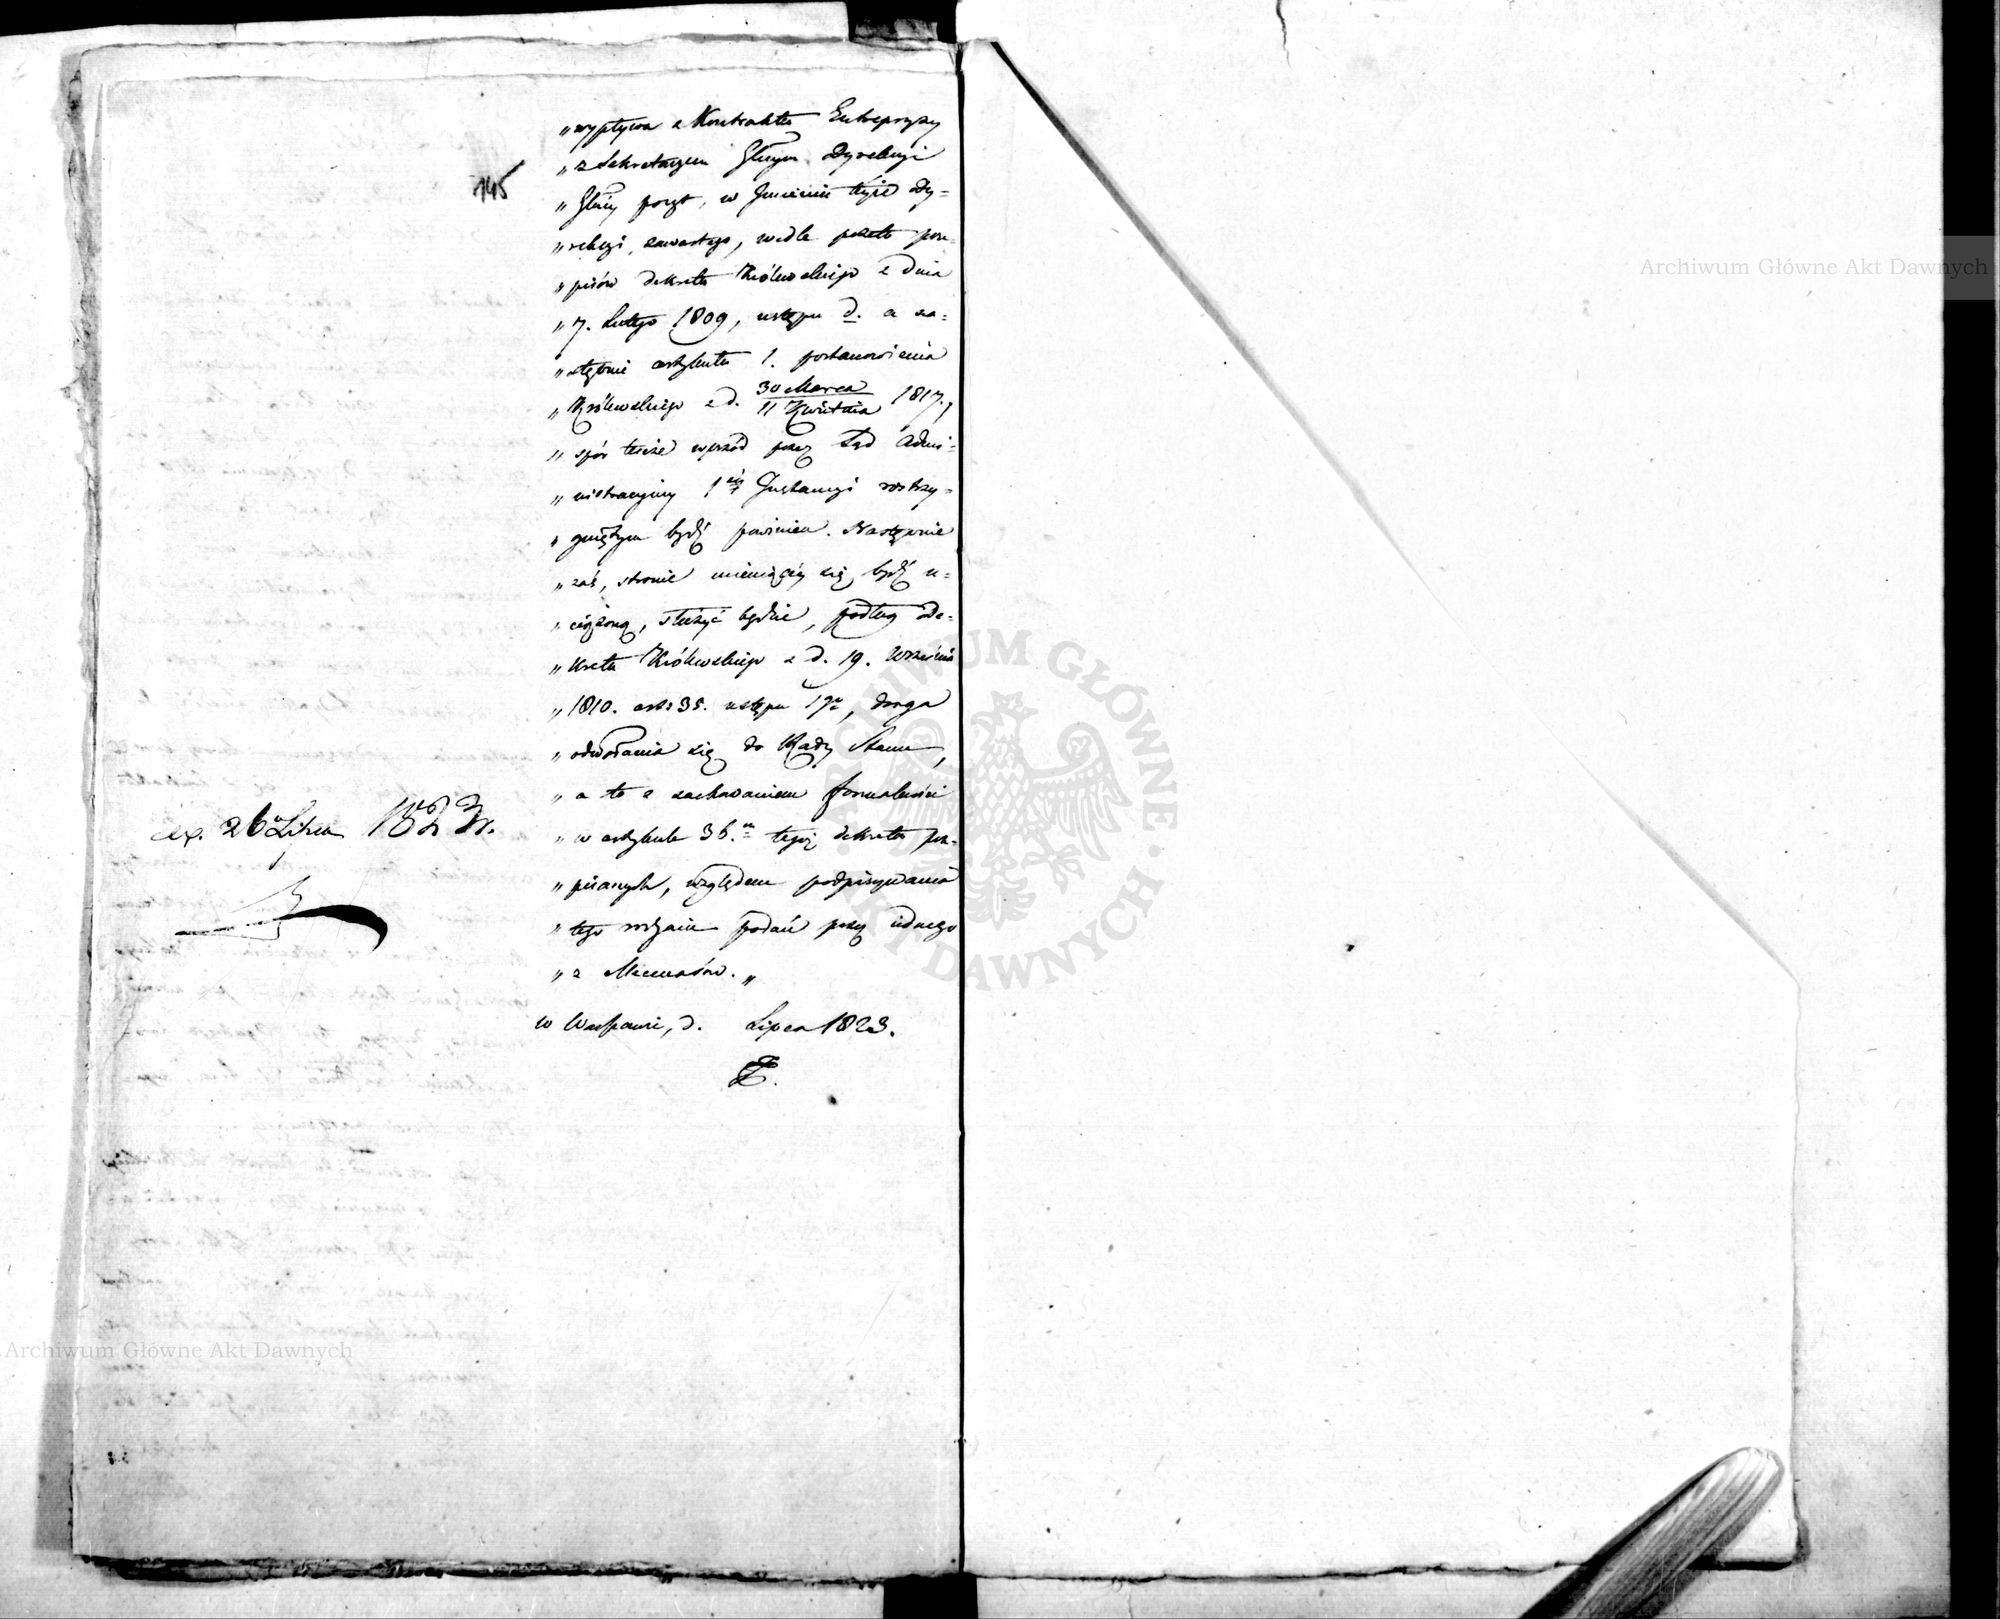 145
„wypływa z Kontraktu Entrepryzy
„z Sekretarzem Głnym Dyrekcyi
„Głney poczt, w Jmieniu teyże Dy=
„rekcyi, zawartego, wedle przeto prze-
„pisów dekretu Królewskiego z dnia
„7. Lutego 1809, ustępu d. a na=
„stępnie artykułu 1. postanowienia
„Królewskiego z d. 30 Marca / 11 Kwietnia 1817.,
„spór tenże wprzód przez Sąd Admi=
„nistracyiny 1éy Jnstancyi rostrzy=
„gniętym bydź powinien. Następnie
„zaś, stronie mieniącéy się bydź u=
„ciążoną, służyć będzie, podług De=
„kretu Królewskiego z d. 19. Września
„1810. art. 35. ustępu 1go, droga
„odwołania się do Rady Stanu,
„a to z zachowaniem formalności
„w artykule 36.m tegoż dekretu prze-
„pisanych, względem podpisywania
„tego rodzaiu podań przez iednego
„z Mecenasów.„
w Warszawie, d. Lipca 1823.
exp. 26 Lipca 1823 r.
Archiwum Główne Akt Dawnych
Archiwum Główne Akt Dawnych
ARCHIWUM GŁÓWNE AKT DAWNYCH